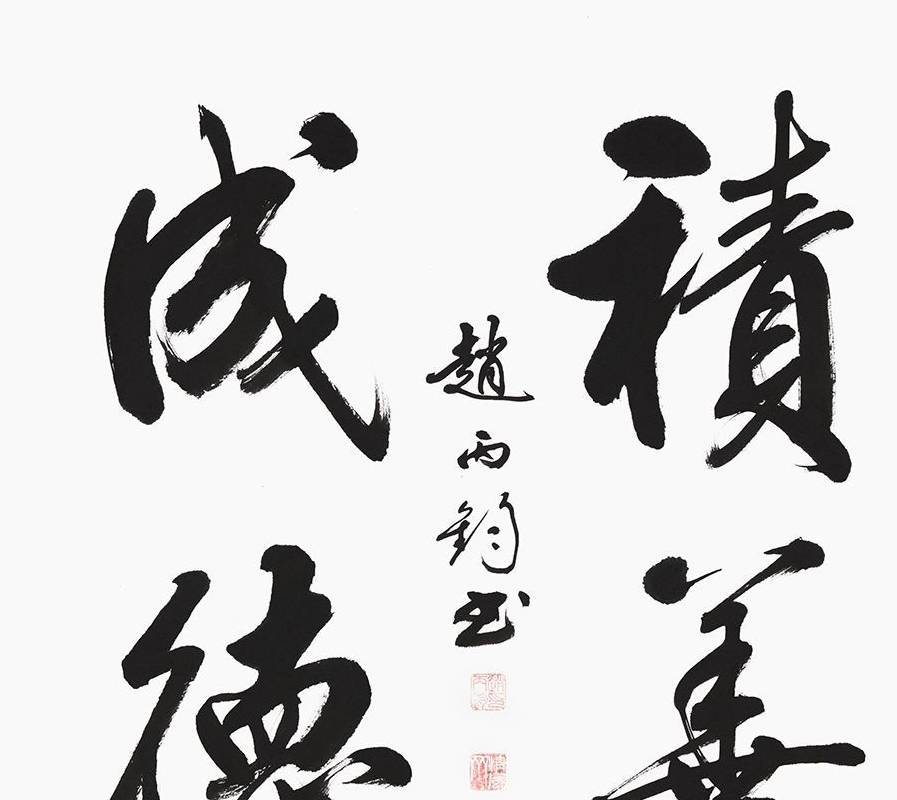 積善
成德
趙丙鈞書